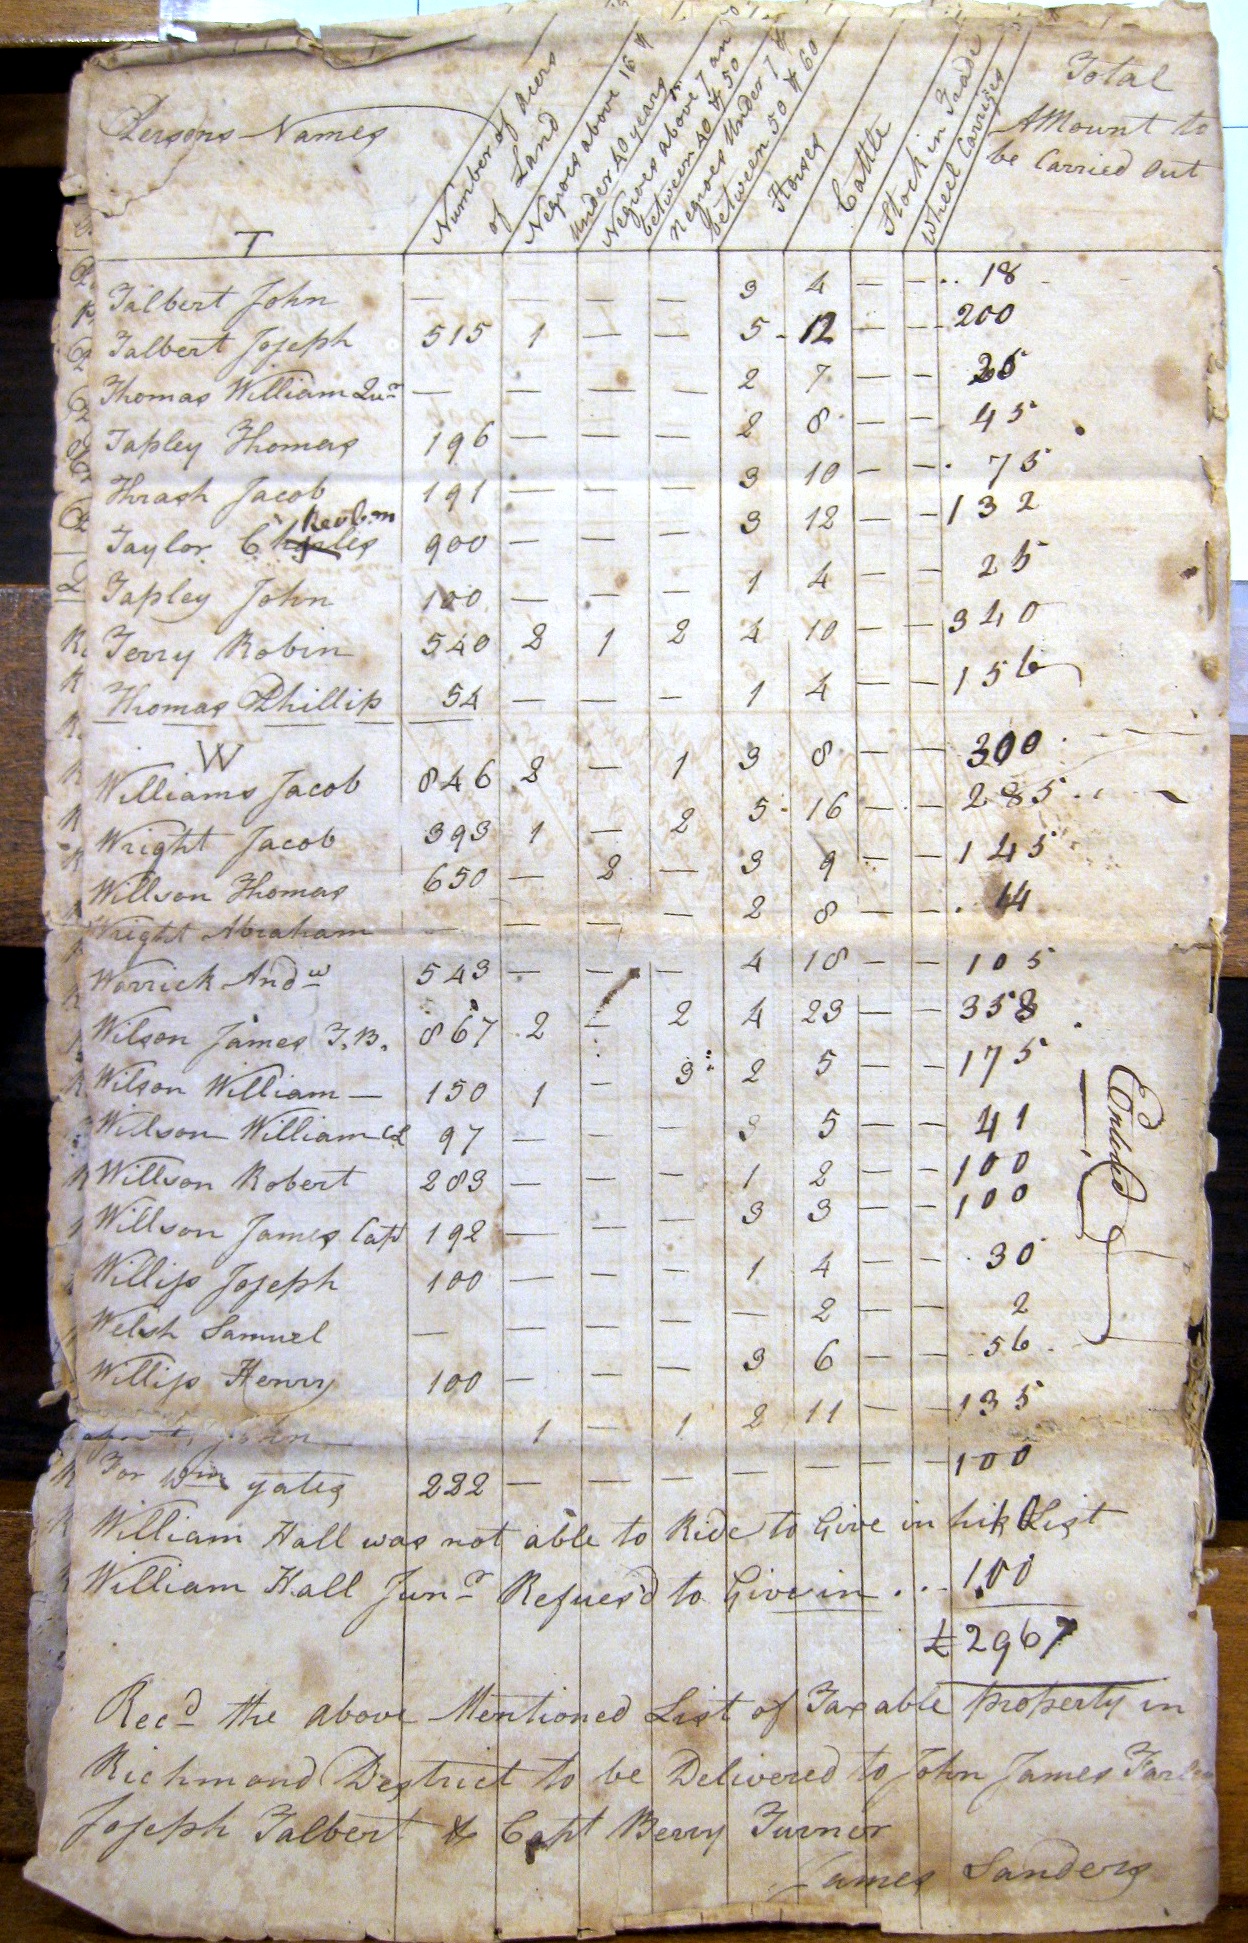 Persons Names
Number of Acers of Land
Negroes above 16 & under 40 years
Negroes above 7 an between 40 & 50
negroes under 7 & between 50 & 60
Horses
Cattle
Stock in Trade
Wheel Carriges
Total Amount to be Carried out
T
Talbert John — — — — 3 4 — — 18
Talbert Joseph 515 1 — — 5 12 — — 200
Thomas William Junr — — — — 2 7 — —
Tapley Thomas 196 — — — 2 8 — — 45
Thrash Jacob 191 — — — 3 10 — — 75
Taylor Charles Reuben 900 — — — 3 12 — — 132
Tapley John 100 — — — 1 4 — — 25
Terry Robin 540 2 1 2 4 10 — — 340
Thomas Phillip 54 — — — 1 4 — — 156
W
Williams Jacob 846 2 — 1 3 8 — — 300
Wright Jacob 393 1 — 2 5 16 — — 285
Willson Thomas 650 — 2 — 3 9 — — 145
Wright Abraham — — — — 2 8 — — 44
Warrick Andw 543 — — — 4 18 — — 105
Wilson James T.B. 867 2 — 2 4 23 — — 358
Wilson William — 150 1 — 3 2 5 — — 175
Willson William 97 — — — 3 5 — — 41
Willson Robert 283 — — — 1 2 — — 100
Willson James Capt 192 — — — 3 3 — — 100
Williss Joseph 100 — — — 1 4 — — 30
Welsh Samuel — — — — — 2 — — 2
Williss Henry 100 — — — 3 6 — — 56
John — 1 — 1 2 11 — — 135
For Wm Yates 222 — — — — — — — 100
William Hall was not able to Ride to Give in his List
William Hall Junr Refues'd to Give in ... 100
£2967
Recd the above Mentioned List of Taxable property in
Richmond Destrict to be Delivered to John James
Joseph Talbert & Capt Berry Turner
James Sanders